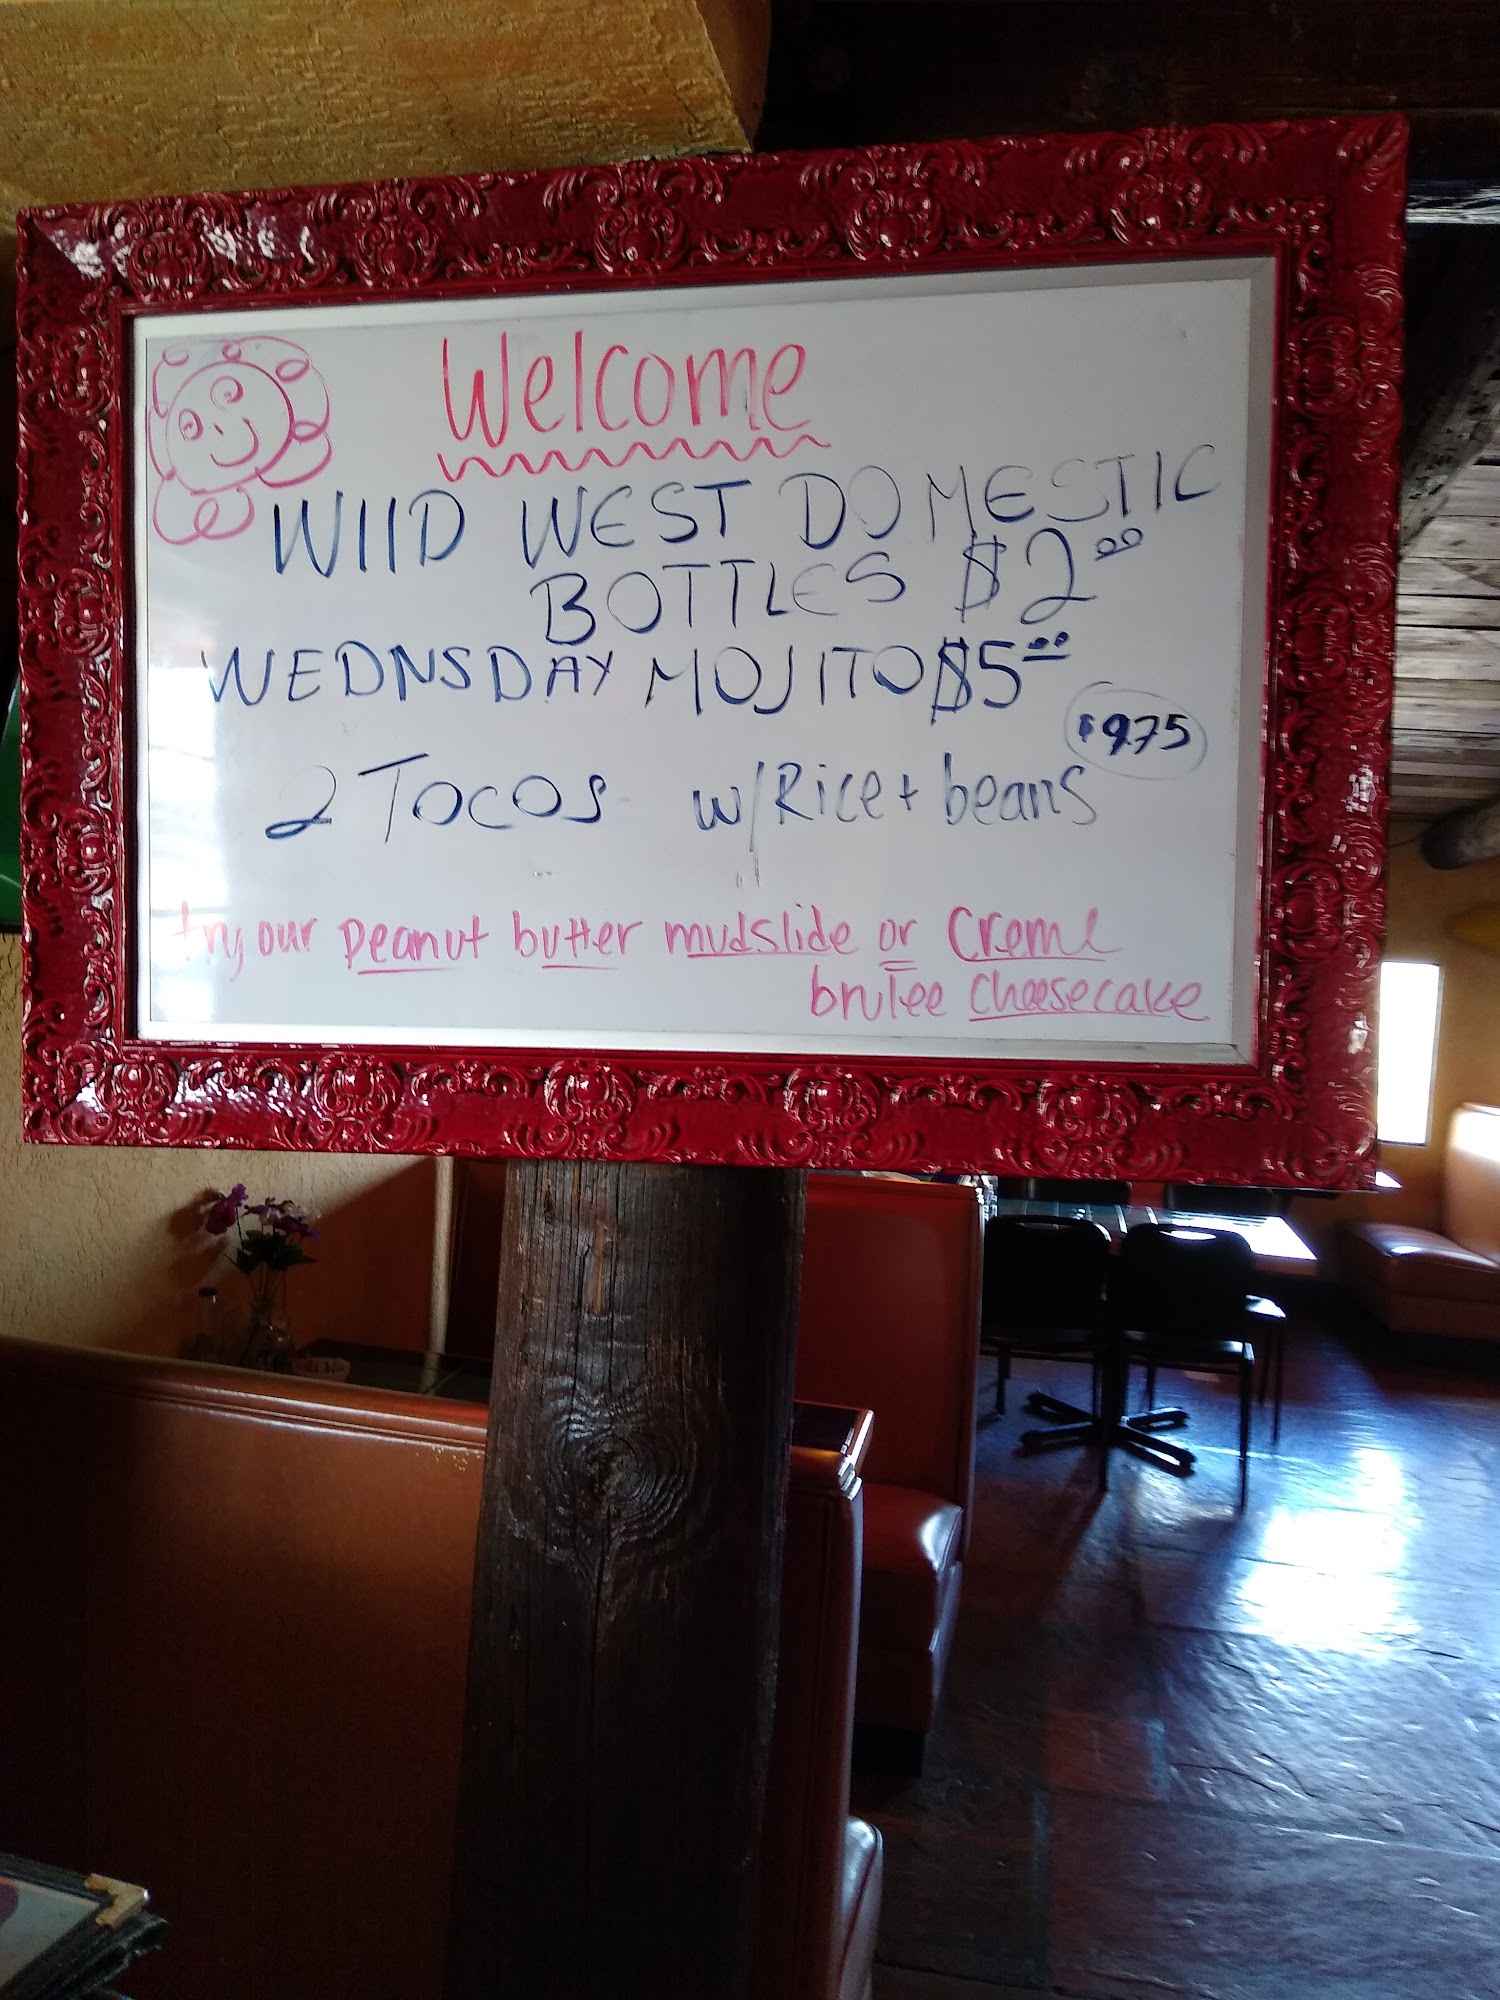 Welcome
WIID WEST DOMESTIC
BOTTLES $2.00
WEDNSDAY MOJITO $5.00
$9.75
2 TOCOS w/Rice + beans
try our peanut butter mudslide or Creme
brulee Cheesecake